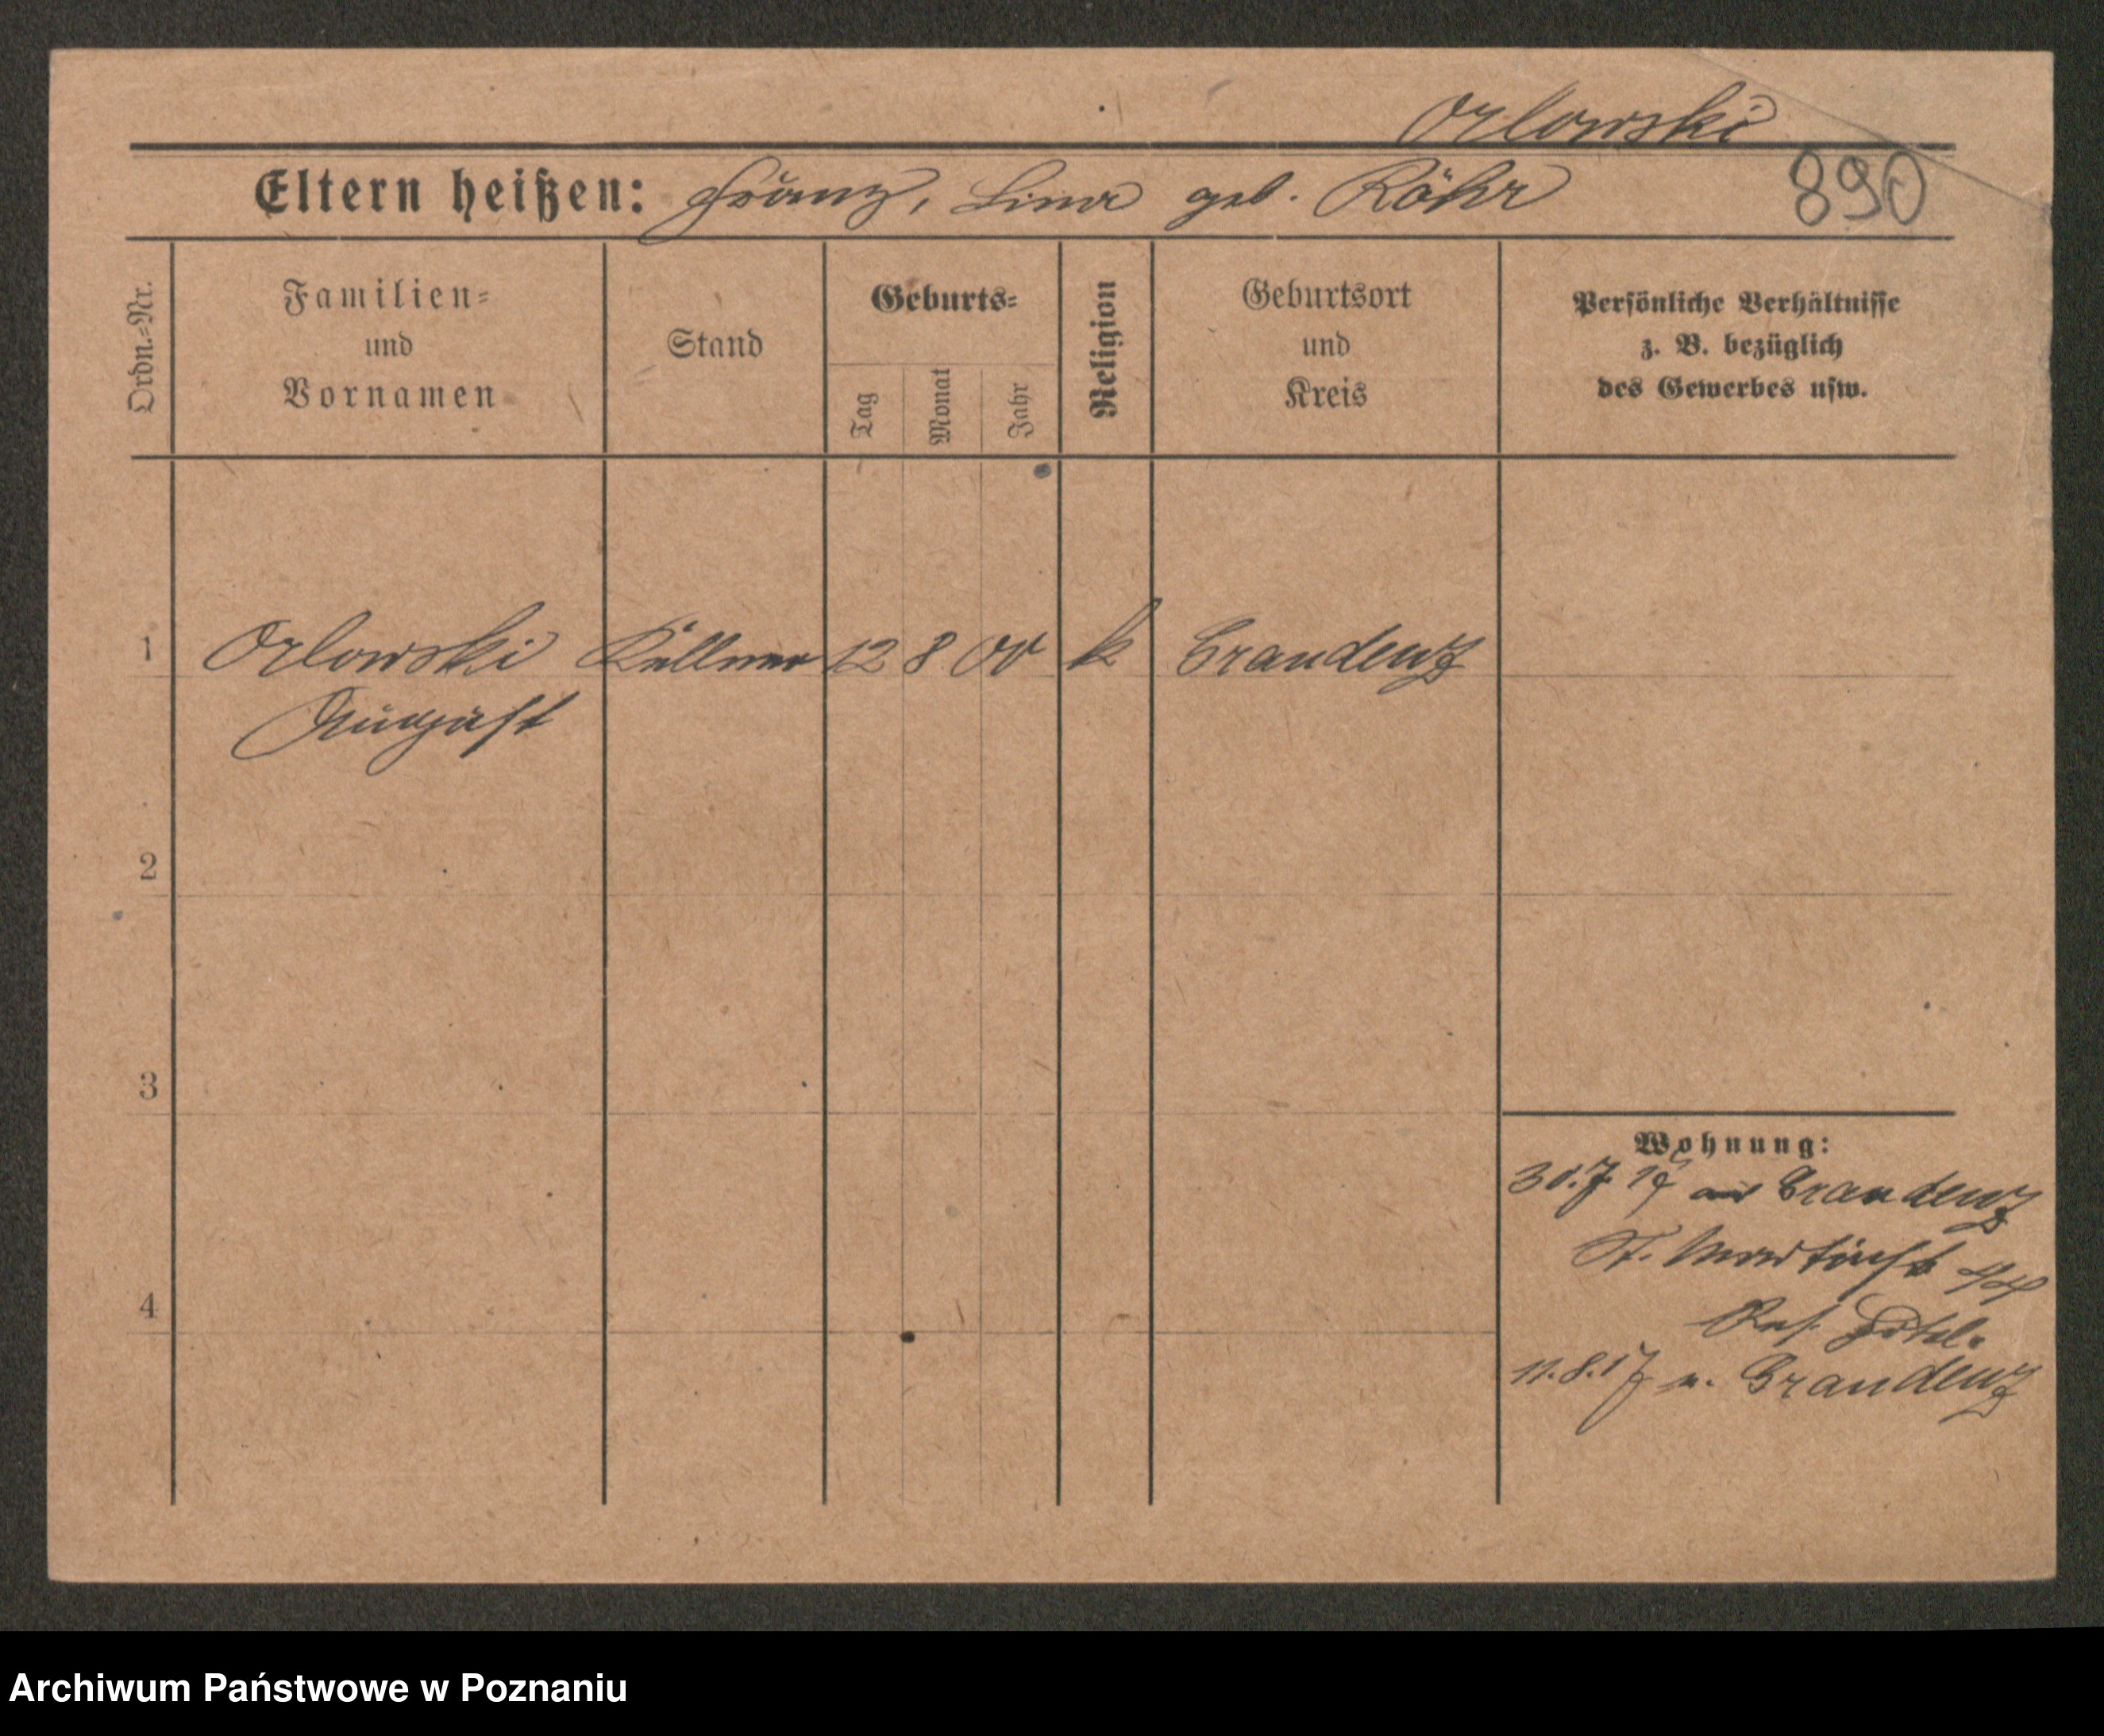 Orlowski
Eltern heißen: Franz, Lina geb. Röhr 890
Ordn.=Nr.
Familien=
und
Vornamen
Stand
Geburts=
Tag
Monat
Jahr
Religion
Geburtsort
und
Kreis
Persönliche Verhältnisse
z. B. bezüglich
des Gewerbes usw.
1 Orlowski Kellner 12 8 00 k Graudenz
August
2
3
4
Wohnung:
30.7.17 aus Graudenz
St. Martinst 44
Hotel.
11.8.17 n. Graudenz
Archiwum Państwowe w Poznaniu